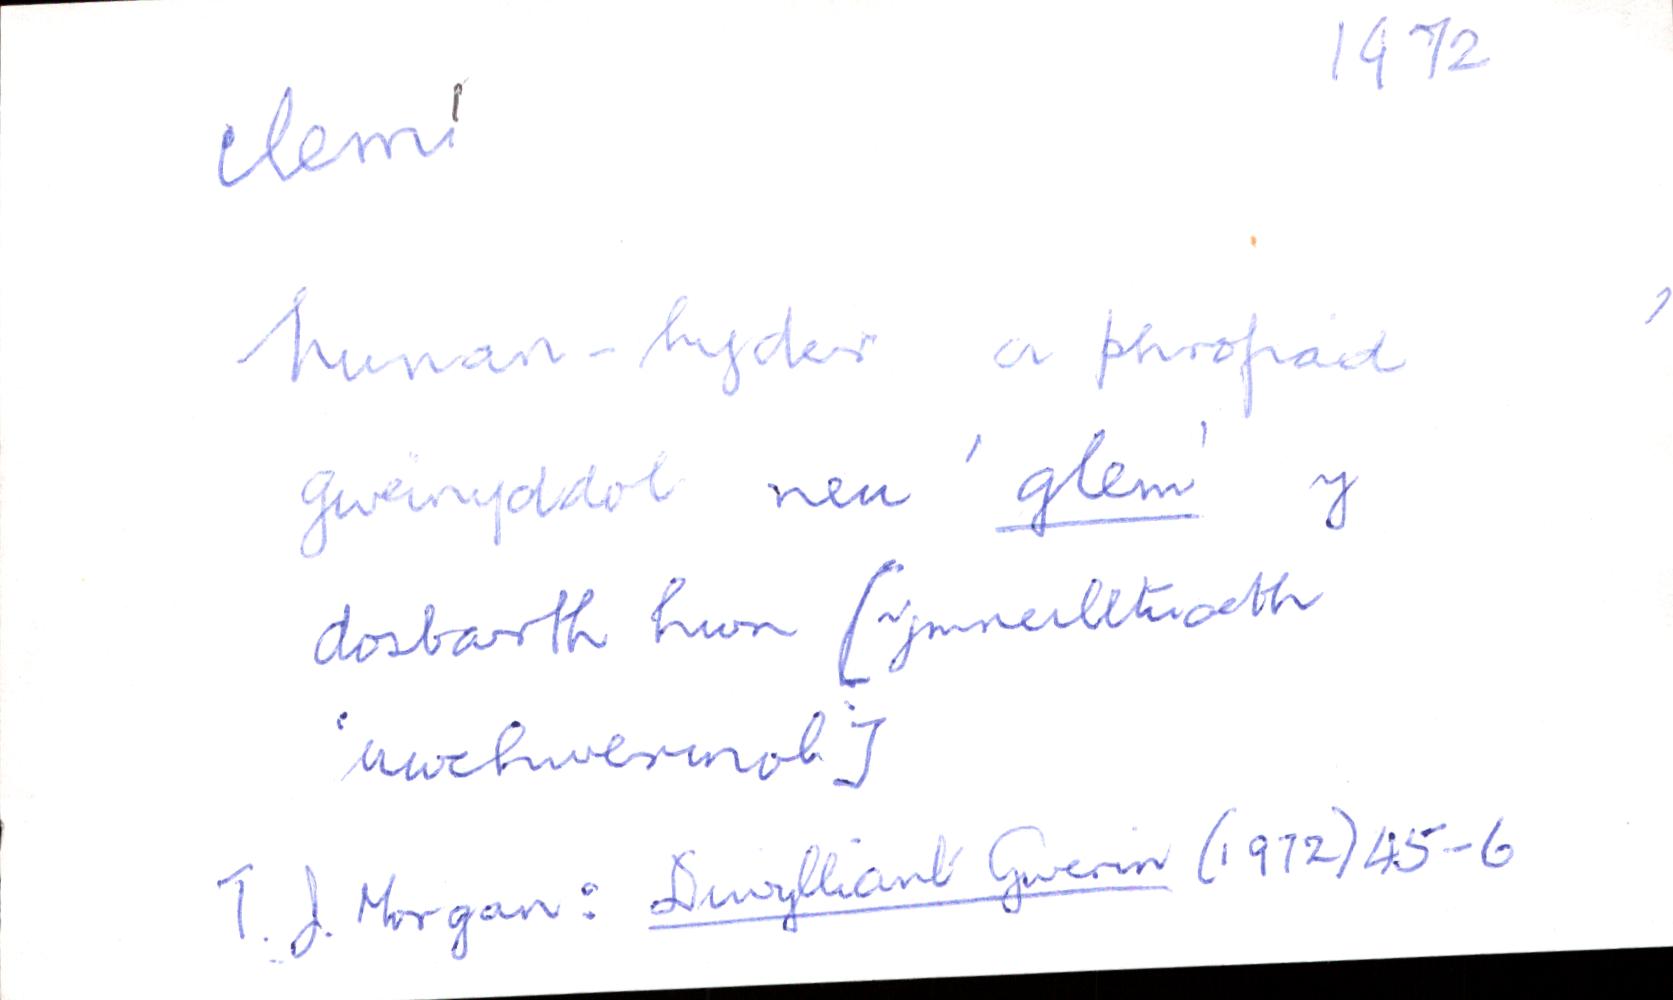 1972
clem¹
hunan-hyder a phrofiad
gweinyddol neu 'glem' y
dosbarth hwn [ymneilltuaeth
'uwchwerinol']
T. J. Morgan: Diwylliant Gwerin (1972) 45-6